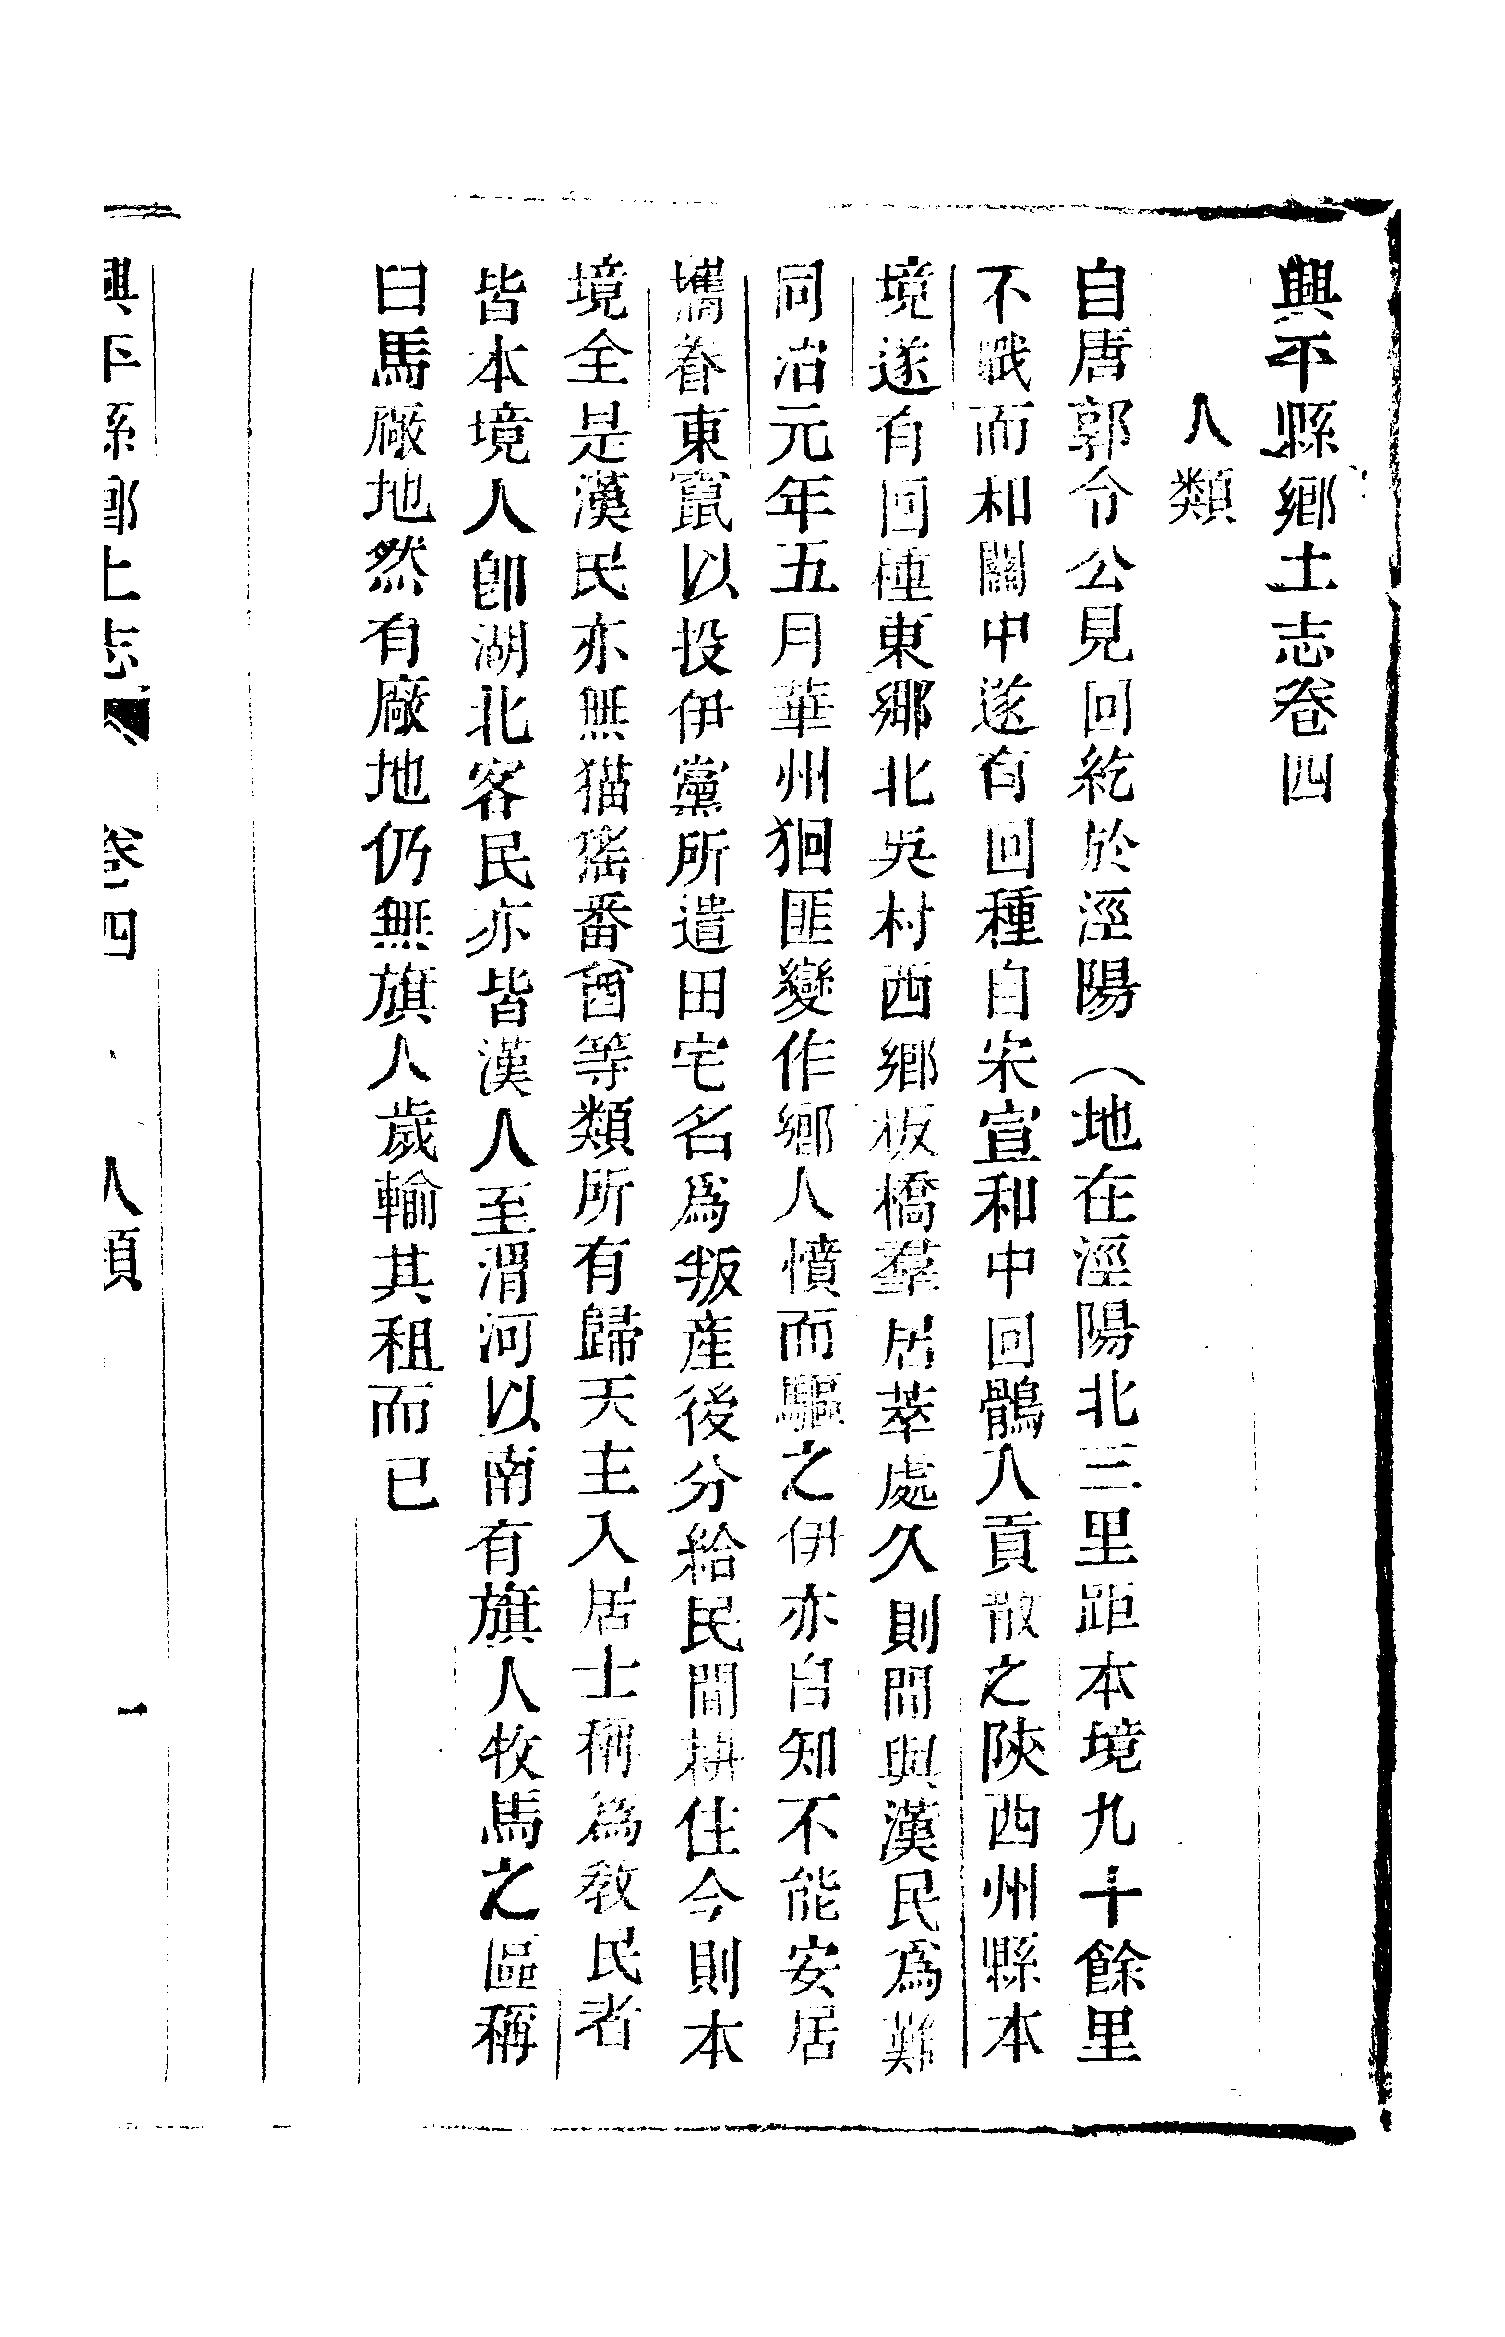 興平縣鄉土志卷四
人類
自唐郭令公見回紇於涇陽（地在涇陽北三里距本境九十餘里
不戰而和關中遂有回種自宋宣和中回鶻入貢散之陝西州縣本
境遂有回種東鄉北吳村西鄉板橋羣居萃處久則間與漢民爲難
同治元年五月華州狪匪變作鄉人憤而驅之伊亦自知不能安居
攜眷東竄以投伊黨所遺田宅名爲叛產後分給民間耕住今則本
境全是漢民亦無猫猺番酋等類所有歸天主入居士稱爲教民者
皆本境人卽湖北客民亦皆漢人至渭河以南有旗人牧馬之區稱
曰馬厰地然有厰地仍無旗人歲輸其租而已
興平縣鄉土志 卷四 人類 一